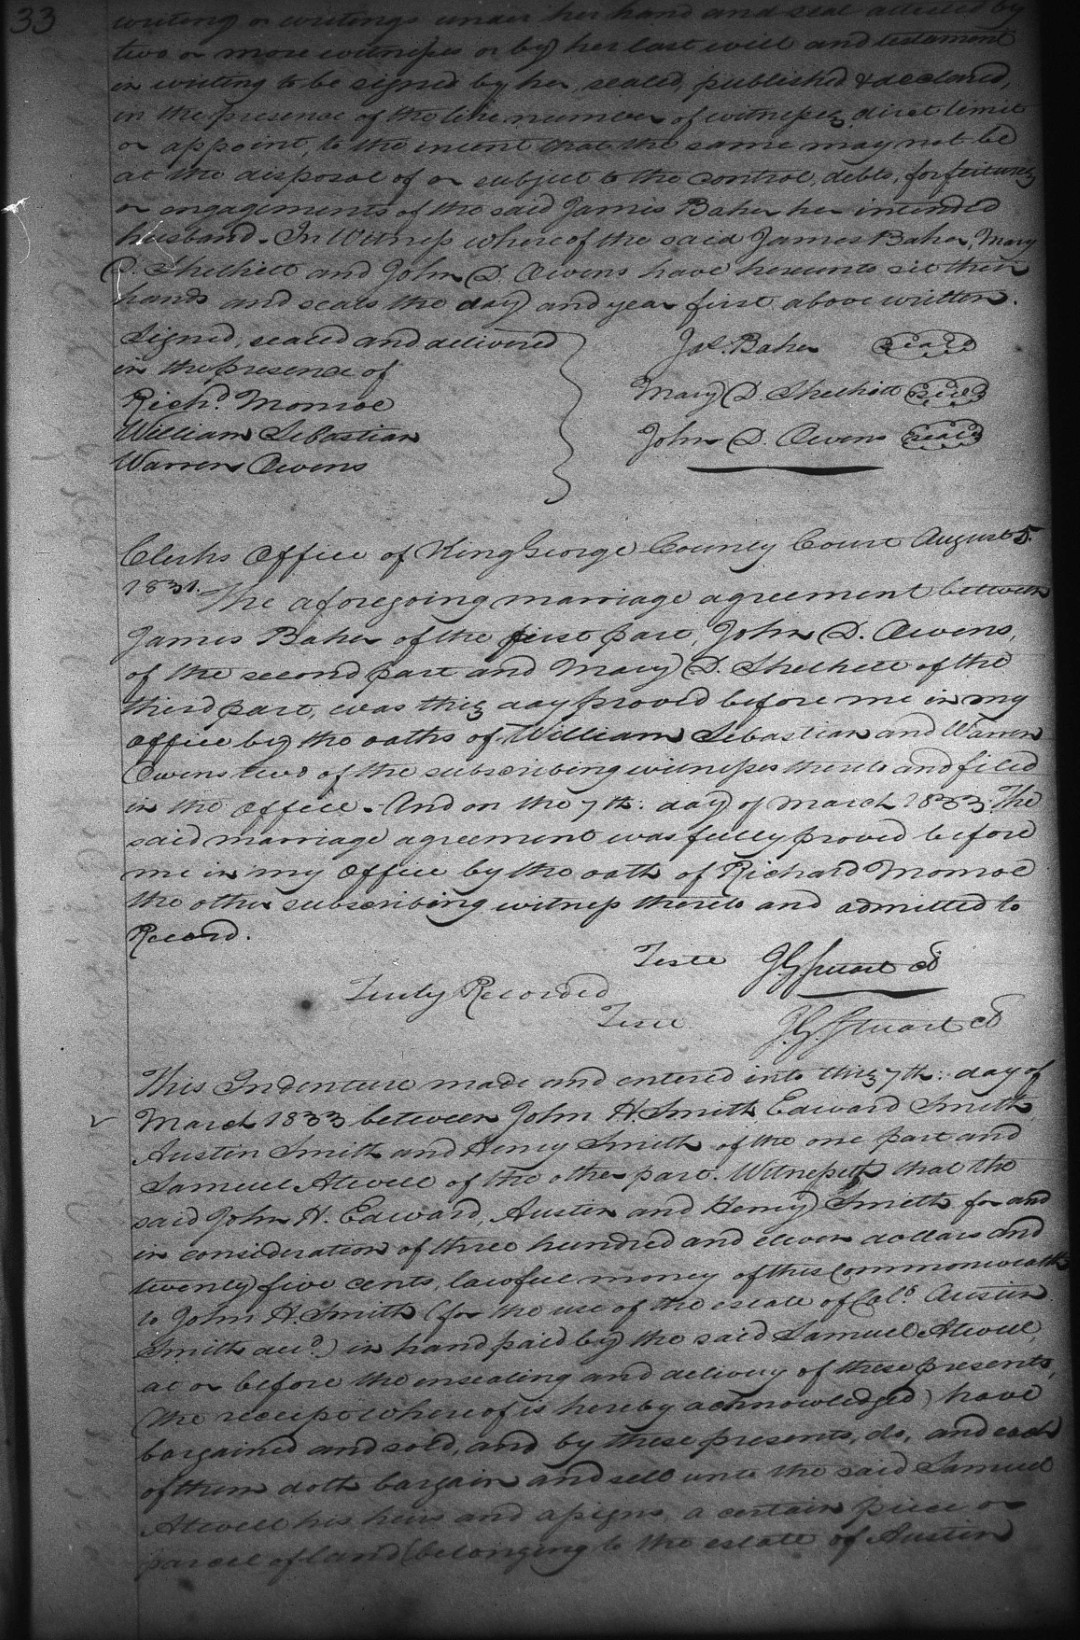 33
writing or writings under her hand and seal attested by
two or more witnesses or by her last will and testament
in writing to be signed by her, sealed, published & declared,
in the presence of the like number of witnesses, direct limit
or appoint, to the intent that the same may not be
at the disposal of or subject to the control, debts, forfeitures
or engagements of the said James Baker her intended
husband. In Witness whereof the said James Baker, Mary
D. Shelkett and John D. Owens have hereunto set their
hands and seals the day and year first above written.
Signed, sealed and delivered
in the presence of
Richd. Monroe
William Sebastian
Warren Owens
Jas. Baker seal
Mary D. Shelkett seal
John D. Owens seal
Clerks Office of King George County Court August 5
1831. The aforegoing marriage agreement between
James Baker of the first part, John D. Owens,
of the second part and Mary D. Shelkett of the
third part, was this day proved before me in my
office by the oaths of William Sebastian and Warren
Owens two of the subscribing witnesses thereto and filed
in the office. And on the 7th. day of March 1833. The
said marriage agreement was fully proved before
me in my office by the oath of Richard Monroe
the other subscribing witness thereto and admitted to
Record.
Teste J G Stuart
Truly Recorded
Teste J. G. Stuart
This Indenture made and entered into this 7th. day of
March 1833 between John H. Smith, Edward Smith,
Austin Smith and Henry Smith of the one part and
Samuel Atwell of the other part. Witnesseth that the
said John H. Edward, Austin and Henry Smith for and
in consideration of three hundred and eleven dollars and
twenty five cents, lawful money of this Commonwealth
to John H. Smith (for the use of the estate of Col. Austin
Smith decd.) in hand paid by the said Samuel Atwell,
at or before the ensealing and delivery of these presents,
(the receipt whereof is hereby acknowledged) have
bargained and sold, and by these presents, do, and each
of them doth bargain and sell unto the said Samuel
Atwell his heirs and assigns, a certain piece or
parcel of land (belonging to the estate of Austin